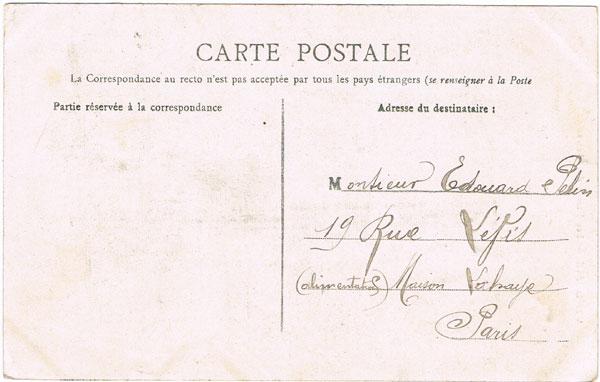 CARTE POSTALE
La Correspondance au recto n'est pas acceptée par tous les pays étrangers (se renseigner à la Poste
Partie réservée à la correspondance
Adresse du destinataire :
Monsieur Edouard
19 Rue
(alimentation) Maison
Paris